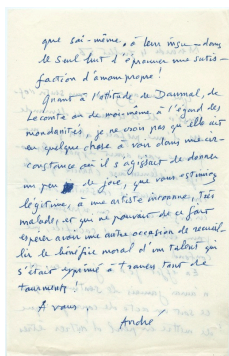 que soi-même, à leur insu — dans
le seul but d'éprouver une satis-
faction d'amour propre !
Quant à l'attitude de Daumal, de
Lecomte ou de moi-même à l'égard des
mondanités, je ne vois pas qu'elle ait
eu quelque chose à voir dans une cir-
constance où il s'agissait de donner
un peu de joie, que vous estimiez
légitime, à une artiste inconnue, très
malade, et qui ne pouvait de ce fait
espérer avoir une autre occasion de recueil-
lir le bénéfice moral d'un talent qui
s'était exprimé à travers tant de
tourments !
A vous
André